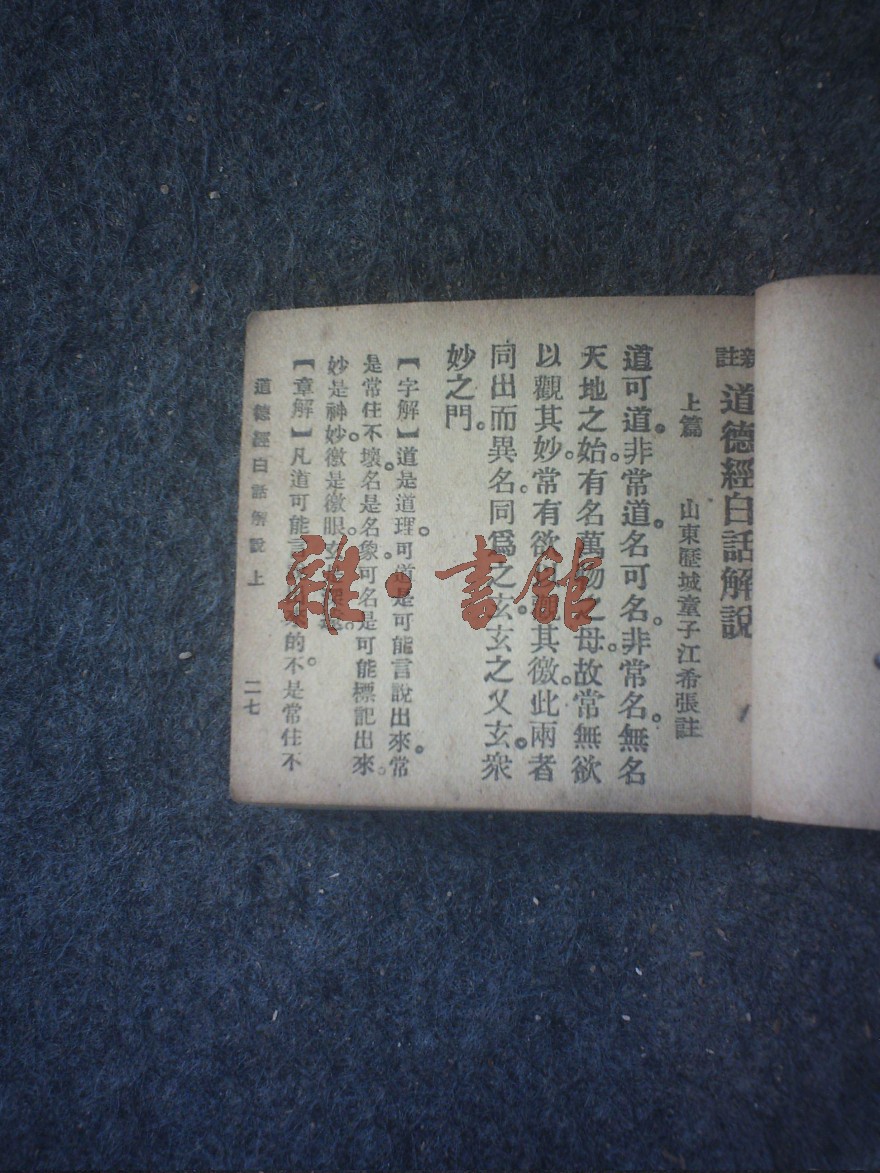 新註 道德經白話解說
上篇 山東歷城童子江希張註
道可道。非常道。名可名。非常名。無名
天地之始。有名萬物之母。故常無欲
以觀其妙。常有欲以觀其徼。此兩者
同出而異名。同爲之玄。玄之又玄。衆
妙之門。
【字解】道是道理。可道是可能言說出來。常
是常住不壞。名是名象。可名是可能標記出來。
妙是神妙。徼是徼眼。玄
【章解】凡道可能言 的。不是常住不
道德經白話解說 上 二七
雜·書館